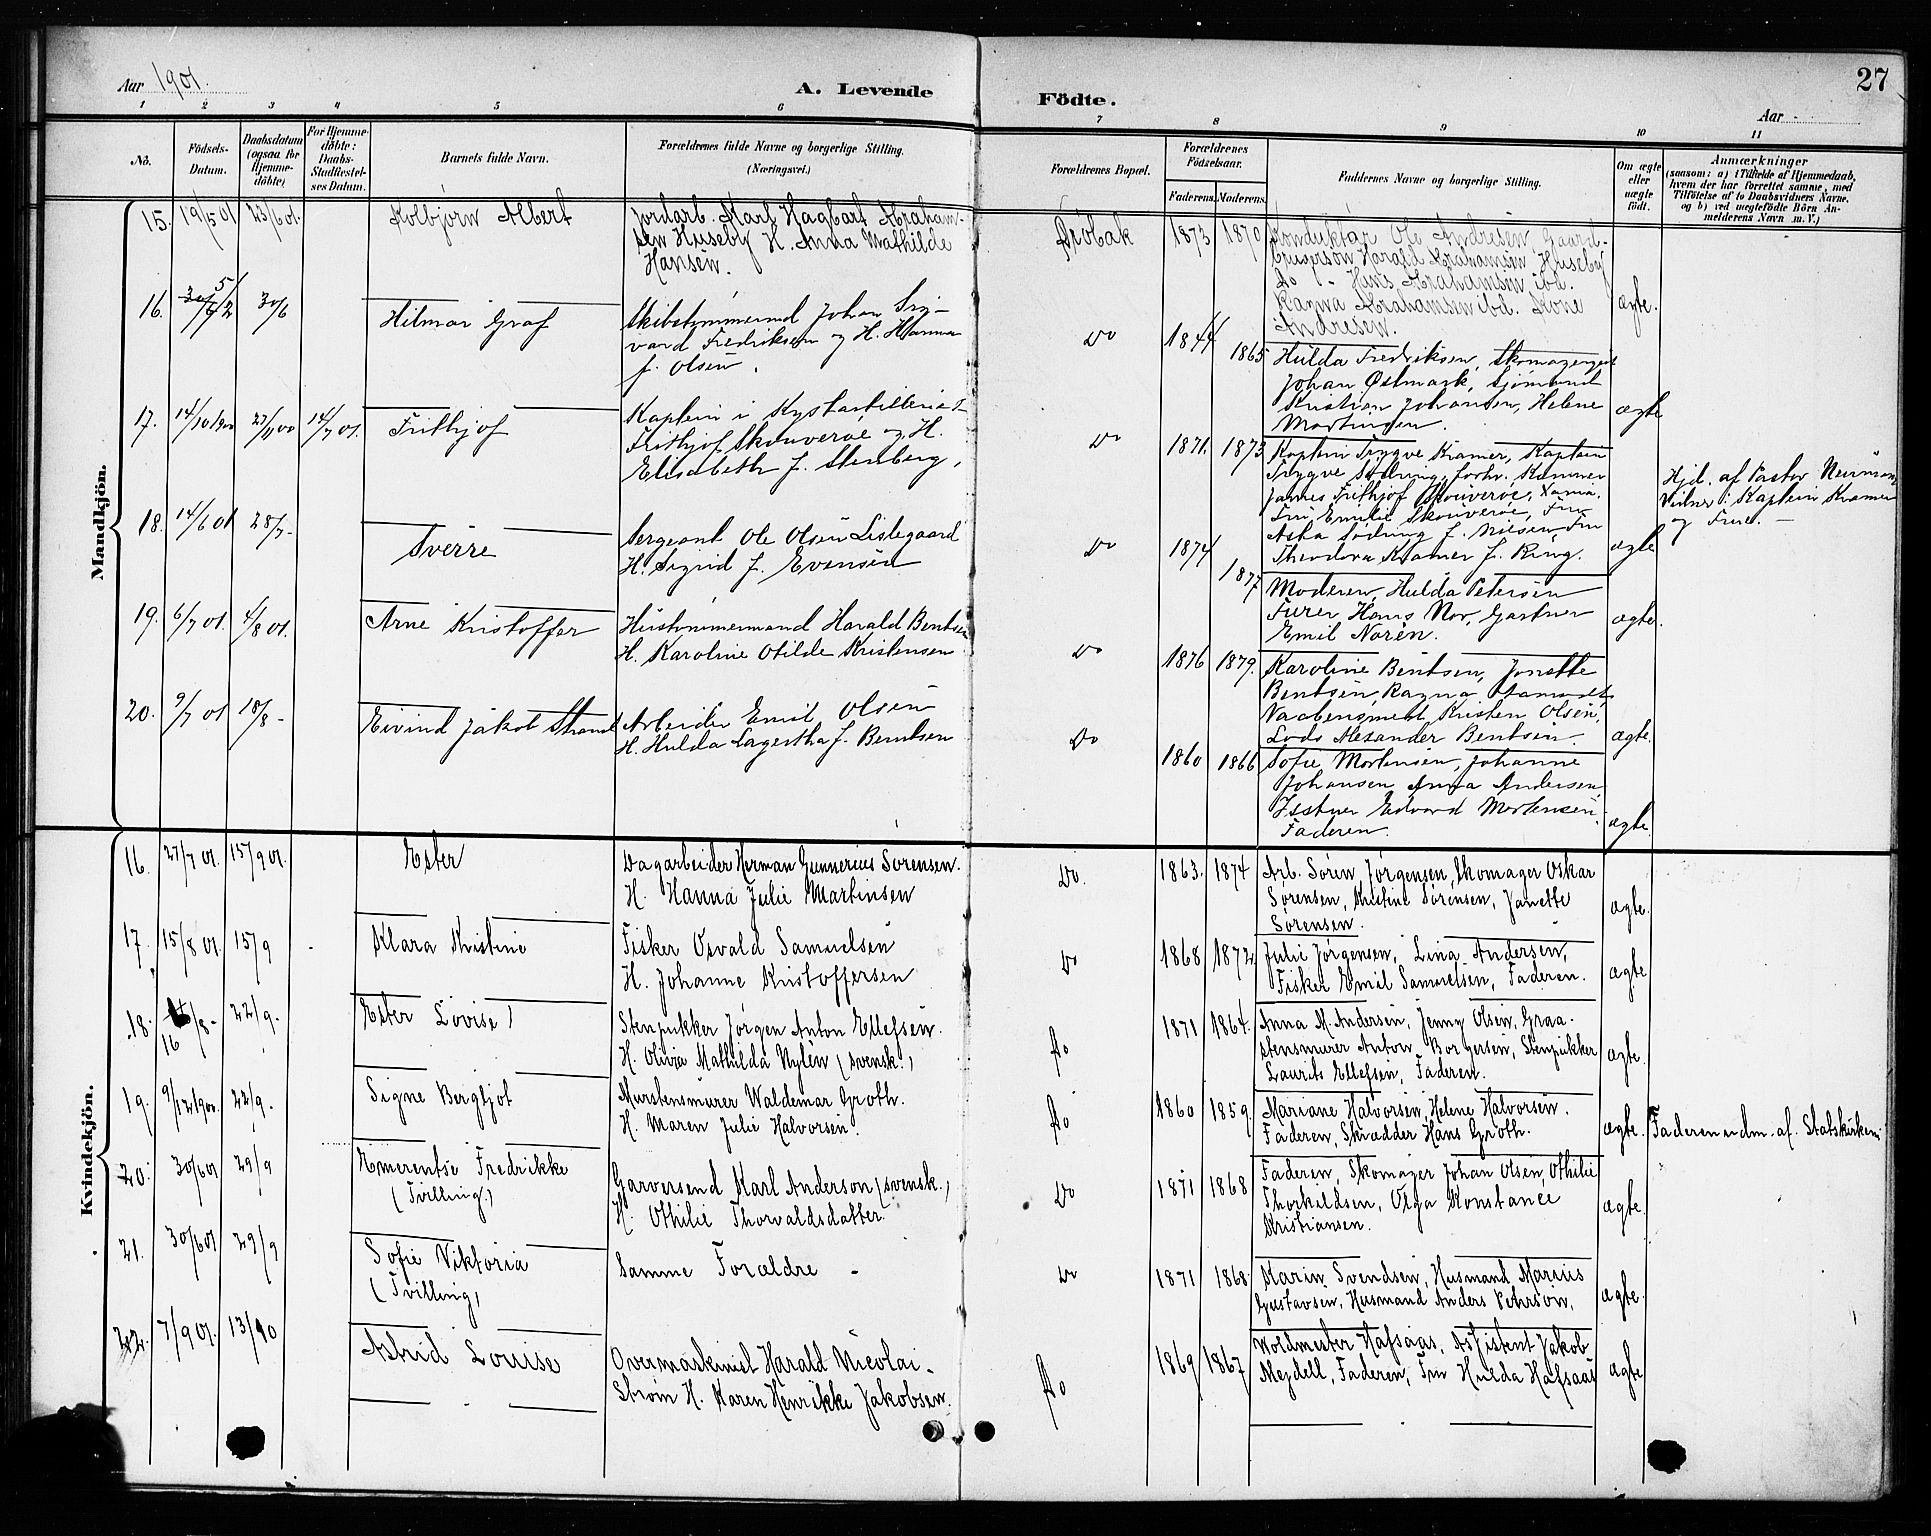 27
Aar 1901.
A. Levende Födte.
Aar
1 2 3 4 5 6 7 8 9 10 11
No.
Födsels-Datum.
Daabsdatum (ogsaa for Hjemme-döbte)
For Hjemme-döbte: Daabs-Stadfæstel-ses Datum.
Barnets fulde Navn.
Forældrenes fulde Navne og borgerlige Stilling. (Næringsvei.)
Forældrenes Bopæl.
Forældrenes Födselsaar.
Faderens. Moderens.
Faddernes Navne og borgerlige Stilling.
Om ægte eller uægte födt.
Anmærkninger
(saasom: a) i Tilfælde af Hjemmedaab,
hvem der har forrettet samme, med
Tilföielse af to Daabsvidners Navne.
og b) ved uegtefödte Börn An-
melderens Navn m. V.)
Mandkjön.
15. 19/5 01 23/6 01. Kolbjørn Albert
Jordarb. Karl Hagbart Abraham-
sen Huseby H. Anna Mathilde
Hansen.
Drøbak 1873 1870
Konduktør Ole Andresen, Gaard-
bruger Harald Abrahamsen Huseby
do Hans Abrahamsen ibd.
Ragna Abrahamsen ibd. Kone
Andresen.
ægte.
16. 5/2 30/6 Hilmar Graf
Skibstømmermd Johan Sig-
vard Fredriksen og H. Hanna
f. Olsen.
Do 1844 1865
Hulda Fredriksen, Skomagergut
Johan Østmark, Sjømand
Kristian Johansen, Helene
Martinsen.
ægte
17. 14/10 1900 27/11 00 14/7 01. Frithjof
Kaptein i Kystartilleriet
Frithjof Skouverøe og H.
Elisabeth f. Stenberg,
Do 1871. 1873
Kaptein Trygve Kramer, Kaptein
Trygve Sødring, Forhv. Kammer
James Frithjof Skouverøe,
Fru Emilie Skouverøe, Fru
Aska Sødring f. Nielsen, Fru
Theodora Kramer f. Ring.
ægte
Hjd. af Pastor Neumann
Vidner: Kaptein Kramer
og Frue. —
18. 14/6 01 28/7 - Sverre
Sergeant Ole Olsen Lislegaard
H. Sigrid f. Evensen
Do 1874 1877
Moderen, Hulda Petersen
Furer Hans Mor, Gartner
Emil Norèn.
ægte.
19. 6/7 01 4/8 01. Arne Kristoffer
Hustømmermand Harald Bentsen
H. Karoline Otilde Kristensen
Do 1876 1879.
Karoline Bentsen, Jonette
Bentsen, Ragna
Vaabensmed Kristen Olsen,
Lods Alexander Bentsen.
ægte.
20. 9/7 01 18/8 - Eivind Jakob Strand
Arbeider Emil Olsen
H. Hulda Lagertha f. Berntsen
Do 1860 1866
Sofie Mortensen, Johanne
Johansen, Anna Andersen,
Edvard Mortensen,
Faderen.
ægte
Kvindekjön.
16. 27/7 01. 15/9 01. Ester
Dagarbeider Herman Gunnerius Sørensen.
H. Hanna Julie Martinsen
Do. 1863. 1874
Arb. Søren Jørgensen, Skomager Oskar
Sørensen, Kristine Sørensen, Janette
Sørensen.
ægte.
17. 15/8 01. 15/9 - Klara Kristine
Fisker Osvald Samuelsen
H. Johanne Kristoffersen
Do 1868 1872
Julie Jørgensen, Lina Andersen,
Fisker Emil Samuelsen, Faderen.
ægte
18. 16/8 - 22/9 - Ester Lovise
Stenpukker Jørgen Anton Ellefsen.
H. Olivia Mathilda Nylèn (svensk.)
do 1871 1864.
Anna M. Andersen, Jenny Olsen, Graa-
stensmurer Anton Borgersen, Stenpukker
Laurits Ellefsen, Faderen.
ægte.
19. 9/12 1900. 22/9 - Signe Bergljot
Murstensmurer Waldemar Groth.
H. Maren Julie Halvorsen.
do 1860 1859.
Mariane Halvorsen, Helene Halvorsen.
Faderen, Skrædder Hans Groth.
ægte.
Faderen udm. af Statskirken
20. 30/6 01 29/9 Emerentse Fredrikke
(Tvilling.)
Garversvend Karl Anderson (svensk.)
H. Othilie Thorvaldsdatter.
Do 1871 1868
Faderen, Skomager Johan Olsen, Othilie
Thorkildsen, Olga Konstance
Kristiansen.
ægte.
21. 30/6 01 29/9 Sofie Viktoria
(Tvilling)
Samme Forældre -
Do 1871 1868
Karin Svendsen, Husmand Marius
Gustavsen, Husmand Anders Pehrson,
ægte.
22. 7/9 01. 13/10 Astrid Louise
Overmaskinist Harald Nicolai
Strøm H. Karen Henrikke Jakobsen.
do 1869 1867
Voldmester Hafsaas, Assistent Jakob
Meydell, Faderen, Fru Hulda Hafsaas
ægte